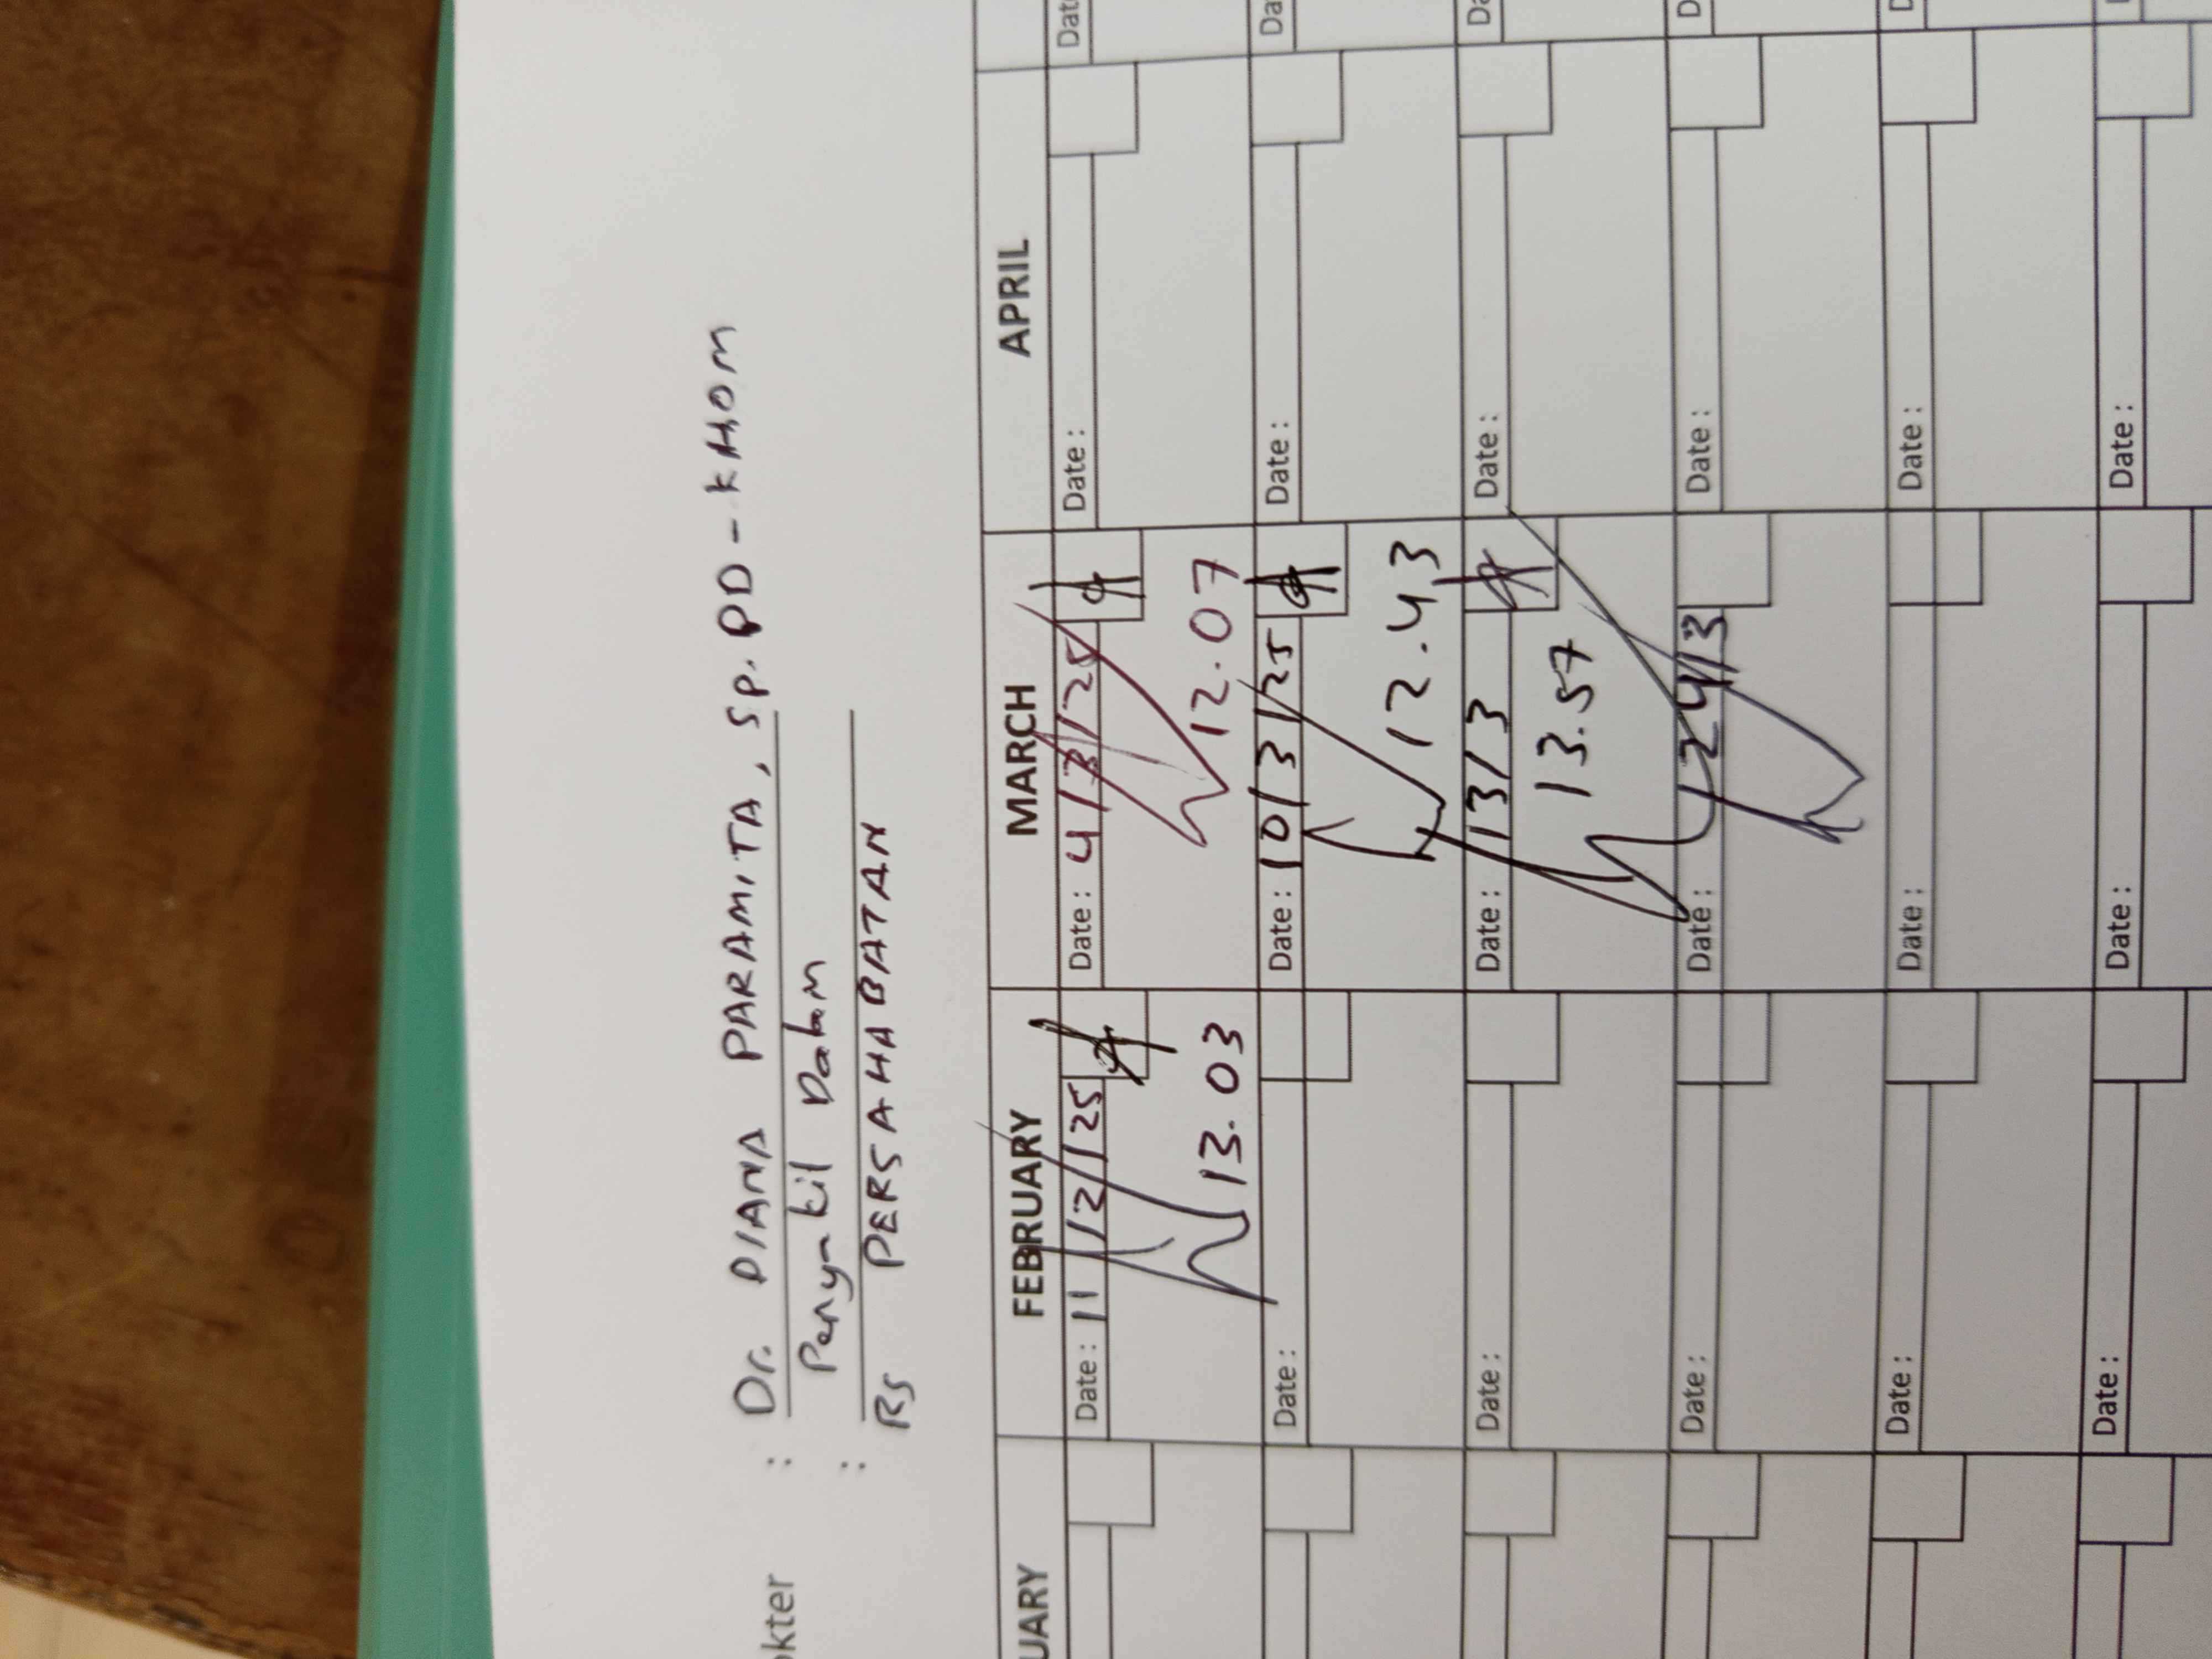 okter : Dr. DIANA PARAMITA, Sp.PD-KHOM
: Penyakit Dalam
RS PERSAHABATAN
UARY FEBRUARY MARCH APRIL
Date: 11/2/25 Date: 4/3/25 Date: Dat
13.03 12.07
Date: Date: 10/3/25 Date: Da
12.43
Date: Date: 13/3 Date: Da
13.57
Date: Date: 24/3 Date: D
Date: Date: Date: D
Date: Date: Date: